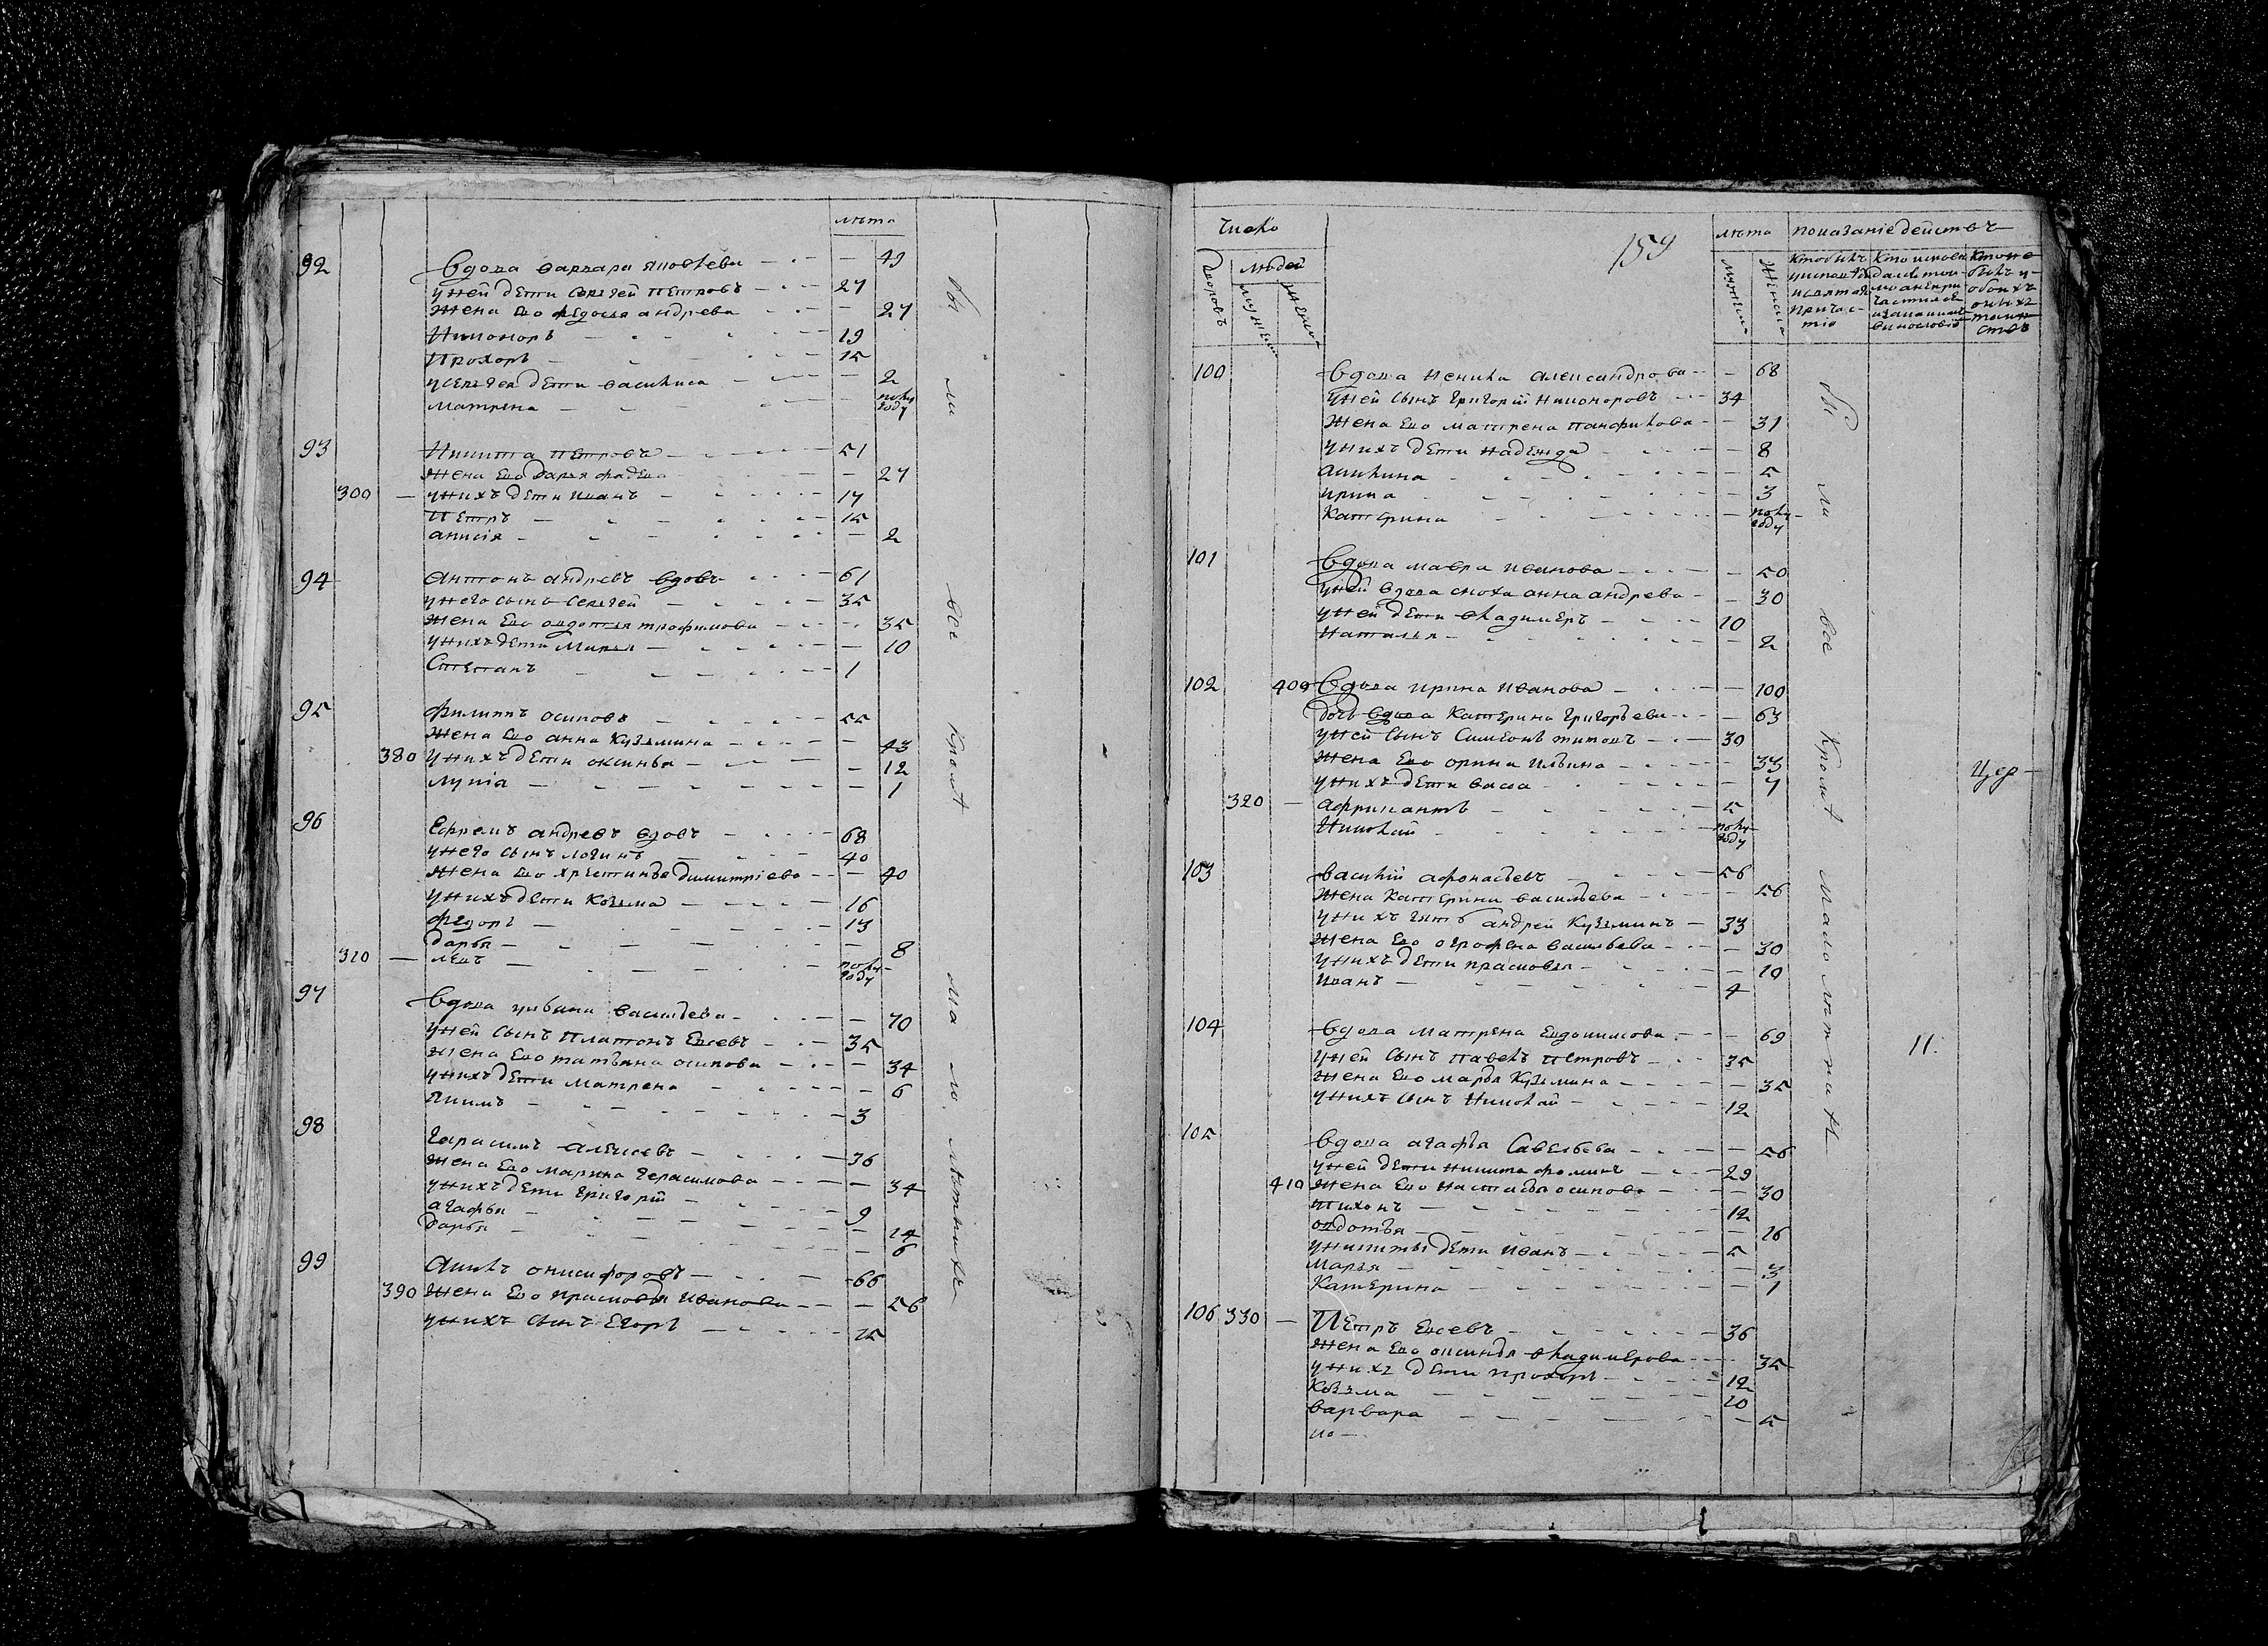 лѣта
92 вдова варвара яковлева — 49
у ней дети сергей петровъ — 27
жена ево федосья андрева — 27
Никоноръ — 19
Прохоръ — 15
у сергея дети василиса — 2
матрена — полу году
93 Никита петровъ — 51
жена ево дарья фадева — 27
300 — у нихъ дети иванъ — 17
Петръ — 15
анисія — 2
94 антонъ андревъ вдовъ — 61
у него сынъ сергей — 35
жена ево овдотья трофимова — 35
у нихъ дети Марья — 10
Степанъ — 1
95 филиппъ осиповъ — 55
жена ево анна кузьмина — 43
380 у нихъ дети оксинья — 12
лукіа — 1
96 Ефремъ андревъ вдовъ — 68
у него сынъ логинъ — 40
жена ево христинья димитріева — 40
у нихъ дети козьма — 16
федоръ — 13
дарья — 8
310 — левъ — полу году
97 вдова ульяна васильева — 70
у ней сынъ платонъ — 35
жена ево татьяна осипова — 34
у нихъ дети матрена — 6
Якимъ — 3
98 гарасимъ алексевъ — 36
жена ево марина герасимова — 34
у нихъ дети григорій — 9
агафья — 14
дарья — 6
99 онисифоровъ — 66
390 жена ево прасковья иванова — 56
у нихъ сынъ егоръ — 15
бы ли все кромѣ ма ло лѣтнихъ
число
159
лѣта
показаніе действъ
дворовъ
людей
мужеска
женска
мужеска
женска
100 вдова ненила александрова — 68
у ней сынъ григорій никоноровъ — 34
жена ево матрена панфилова — 31
у нихъ дети надежда — 8
акилина — 5
ирина — 3
катерина — полу году
101 вдова мавра иванова — 50
у ней вдова сноха анна андрева — 30
у ней дети владимеръ — 10
наталья — 2
102 400 вдова ирина иванова — 100
дочь вдова катерина григорьева — 63
у ней сынъ симеонъ титовъ — 30
жена ево орина ильина — 33
у нихъ дети васса — 7
320 — африкантъ — 5
Николай — полу году
103 василій афонасьевъ — 56
жена катерина васильева — 56
у нихъ зять андрей кузьминъ — 33
жена ево огрофена васильева — 30
у нихъ дети прасковья — 10
иванъ — 4
104 вдова матрена евдокимова — 69
у ней сынъ павелъ петровъ — 35
жена ево марья кузьмина — 35
у нихъ сынъ николай — 12
105 вдова агафья савельева — 56
у ней дети никита фоминъ — 29
410 жена ево настасья осипова — 30
тихонъ — 12
овдотья — 16
у никиты дети иванъ — 5
марья — 3
катерина — 1
106 330 — Петръ — 36
жена ево оксинья владимерова — 35
у нихъ дети прохоръ — 12
козьма — 10
варвара — 5
бы ли все кромѣ малолѣтнихъ
11.
цер—